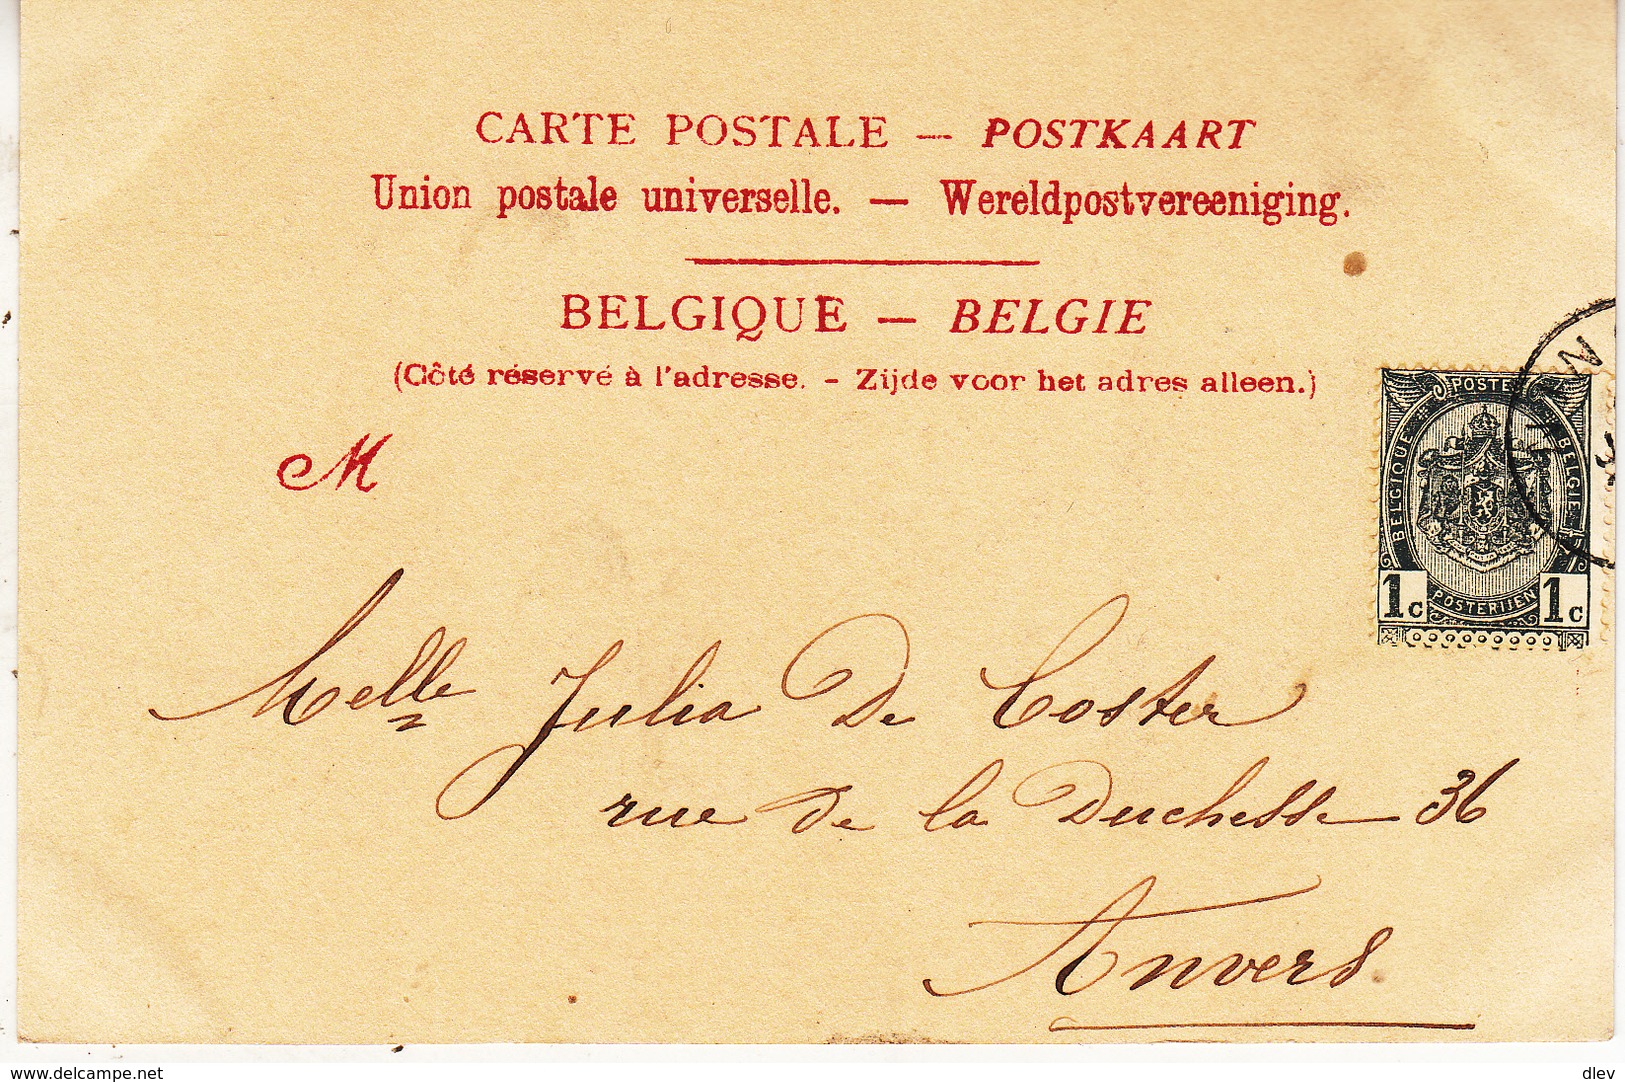 CARTE POSTALE — POSTKAART
Union postale universelle. — Wereldpostvereeniging.
BELGIQUE — BELGIE
(Côté réservé à l'adresse. - Zijde voor het adres alleen.)
M
POSTES
BELGIQUE
BELGIE
1c POSTERIJEN 1c
Melle Julia De Coster
rue de la Duchesse 36
Anvers
www.delcampe.net
dlev